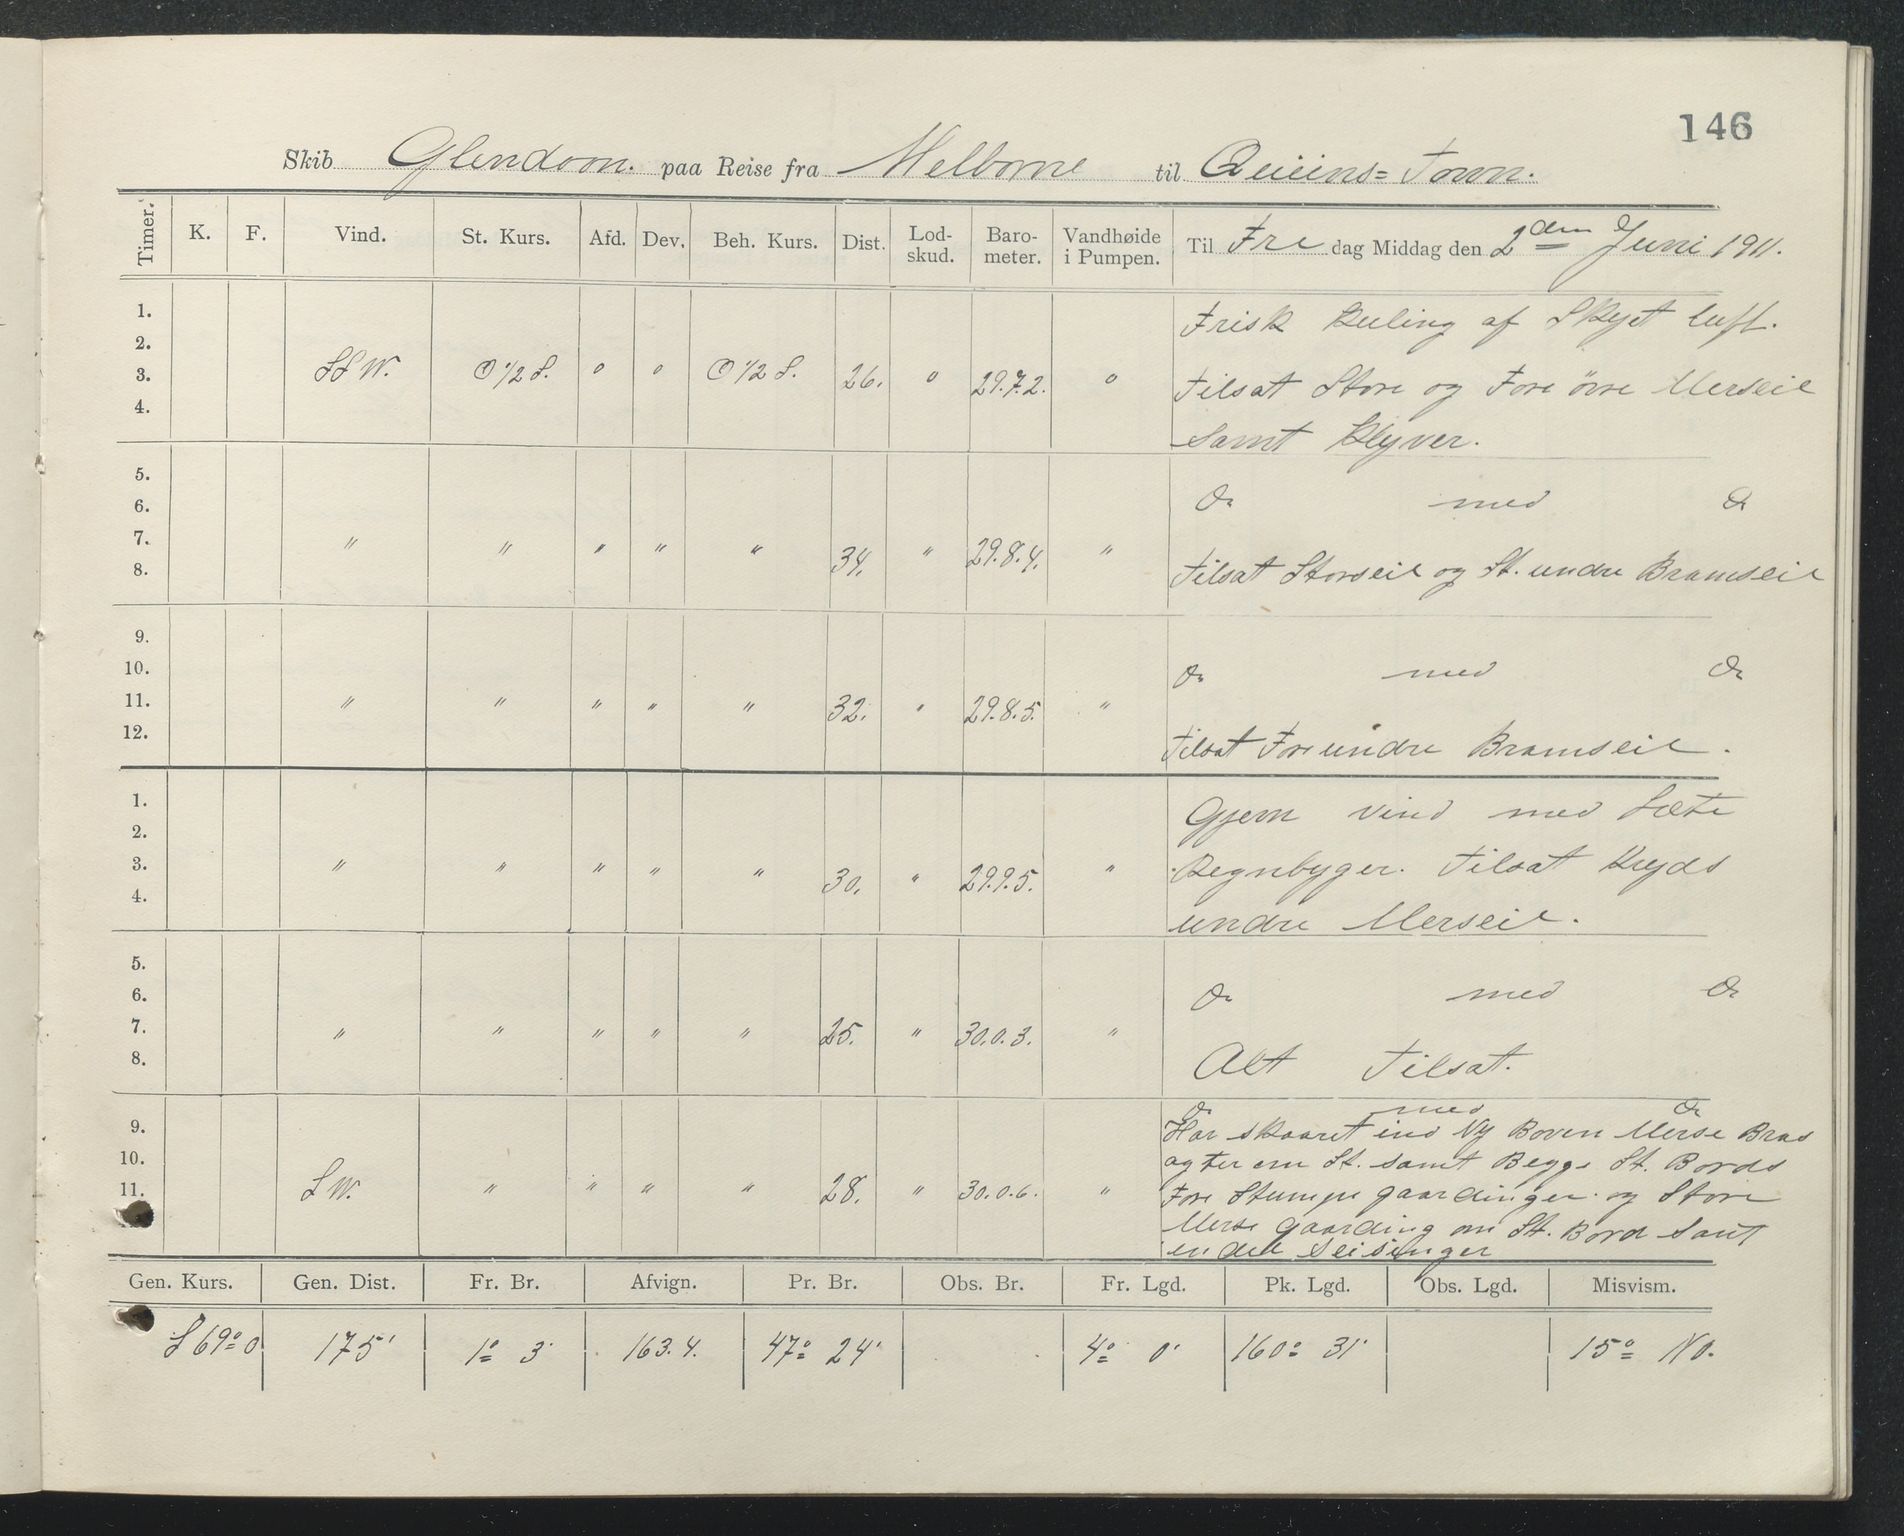 146
Skib Glendoon. paa Reise fra Melborne til Queeins=Town.
Timer. K. F. Vind. St. Kurs. Afd. Dev. Beh. Kurs. Dist. Lod-skud. Baro-meter. Vandhøide i Pumpen. Til Fre dag Middag den 2den Juni 1911.
1.
2.
3.
4.
SSW. O 1/2 S. 0 0 O 1/2 S. 26. 0 29.7.2. 0
Frisk Kuling af Skyet luft.
Tilsat Store og Fore övre Merseil
samt Klyver.
5.
6.
7.
8.
" " " " " 34. " 29.8.4. "
Do med Do
Tilsat Storseil og St. undre Bramseil
9.
10.
11.
12.
" " " " " 32. " 29.8.5. "
Do med Do
Tilsat Fore undre Bramseil.
1.
2.
3.
4.
" " " " " 30. " 29.9.5. "
Gjem vind med Læte
Regnbyger. Tilsat Kryds
undre Merseil.
5.
6.
7.
8.
" " " " " 25. " 30.0.3. "
Do med Do
Alt Tilsat.
9.
10.
11.
SW. " " " " 28. " 30.0.6. "
Do med Do
Har skaaret ind Ny Boven Merse Bras
agter om St. samt Begge St. Bords
Fore Stumpe gaardinger og Store
Merse gaarding om St. Bord samt
en del Seisinger
Gen. Kurs. Gen. Dist. Fr. Br. Afvign. Pr. Br. Obs. Br. Fr. Lgd. Pk. Lgd. Obs. Lgd. Misvism.
S 69° O 175' 1° 3' 163.4. 47° 24' 4° 0' 160° 31' 15° NO.